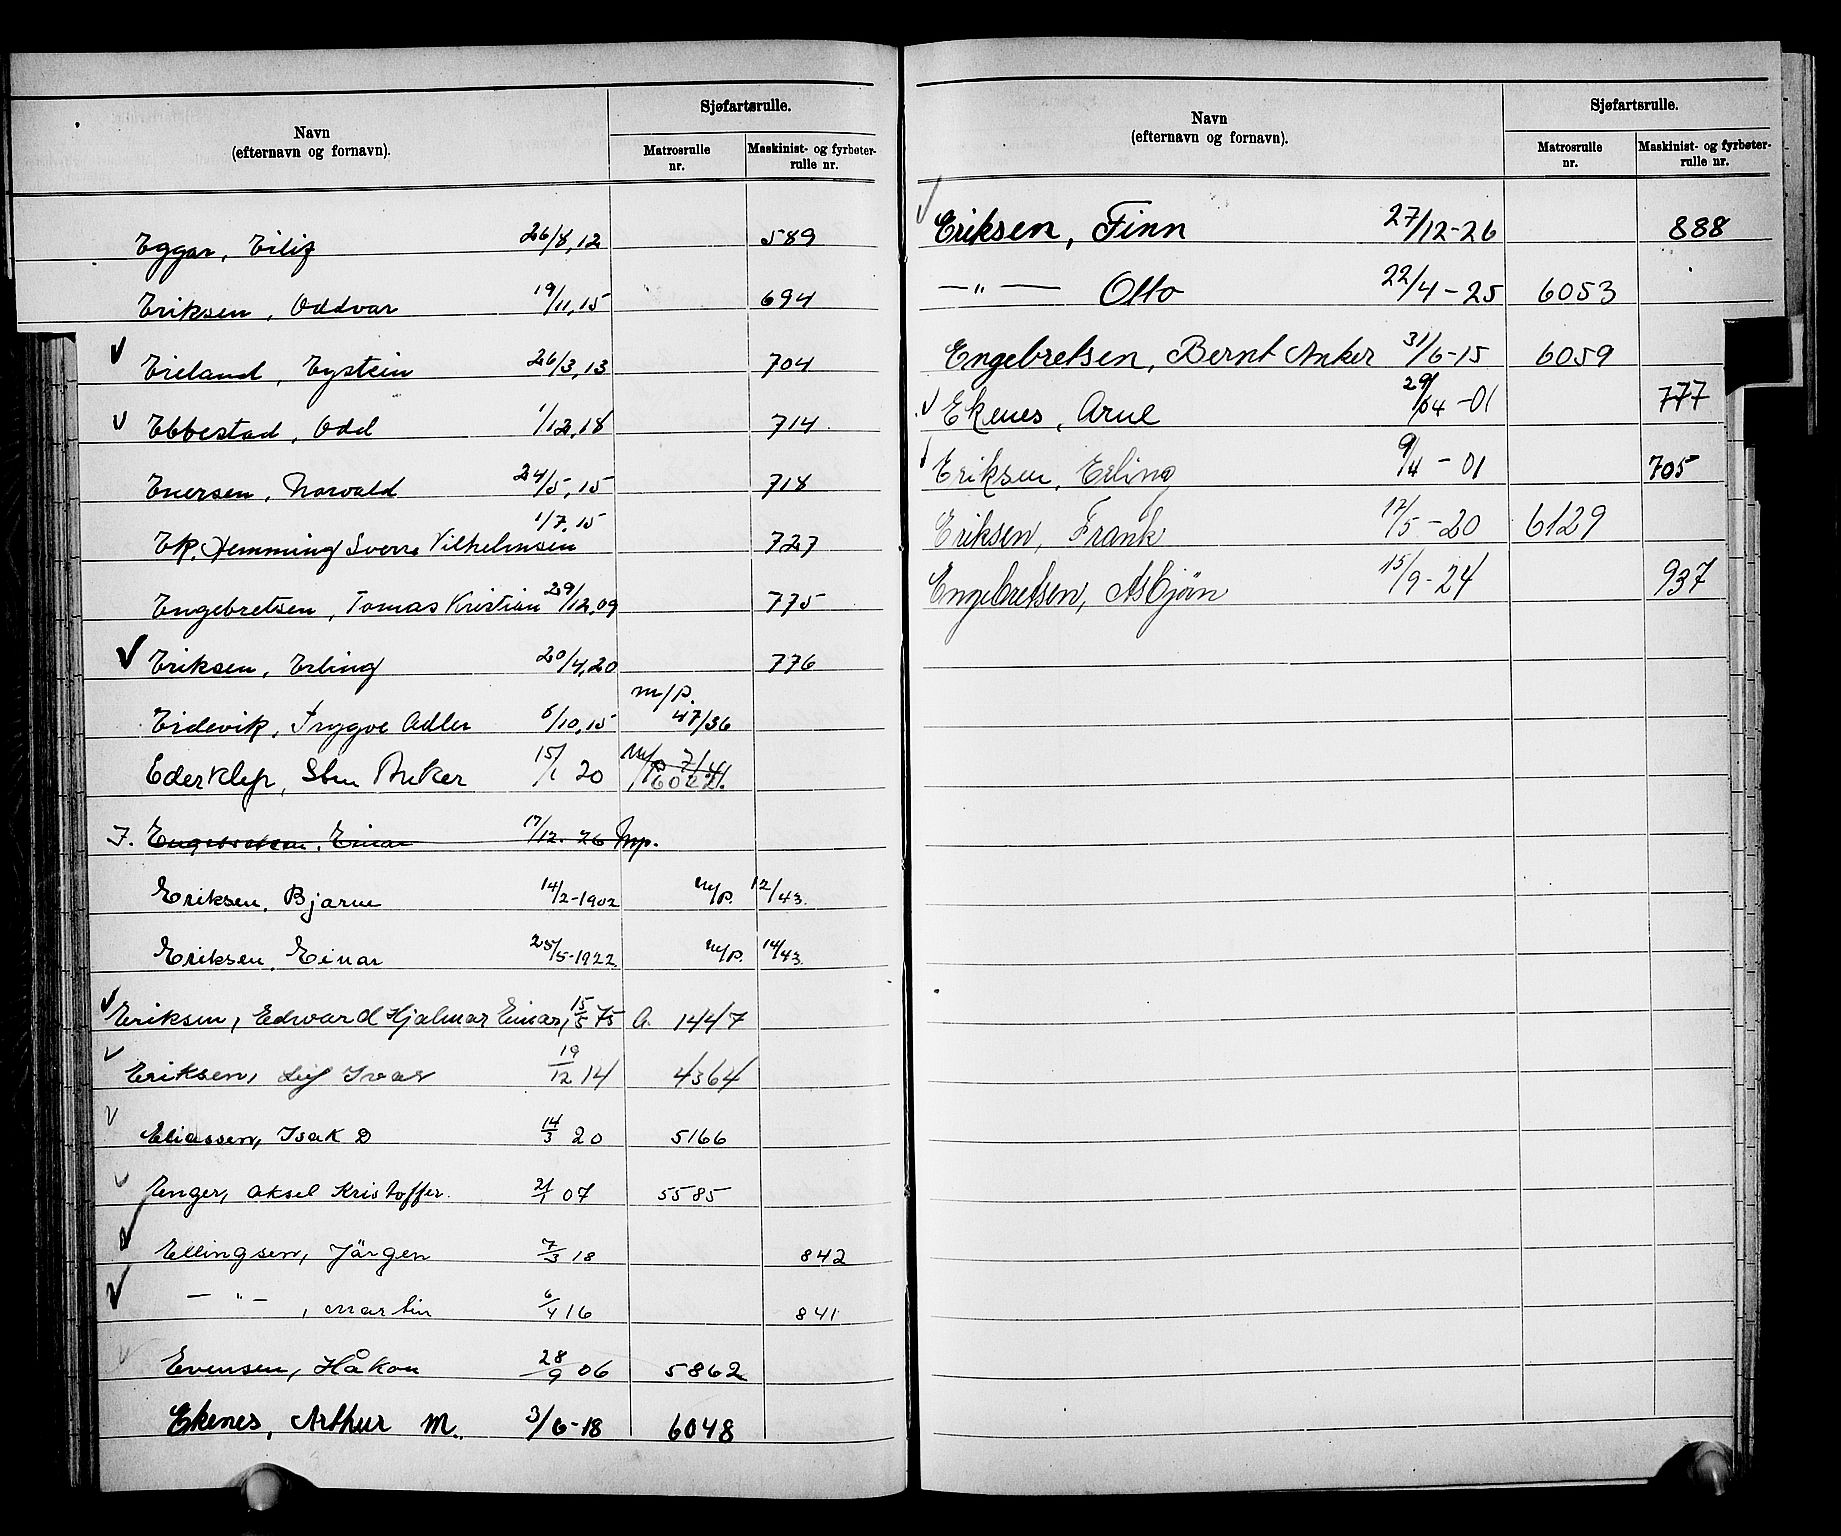 Navn
(efternavn og fornavn).
Sjøfartsrulle.
Matrosrulle nr.
Maskinist- og fyrbøter-rulle nr.
Eggar, Eilif 26/8, 12 589
Eriksen, Oddvar 19/11, 15 694
✓ Eieland, Eystein 26/3, 13 704
✓ Ebbestad, Odd 1/12, 18 714
Enersen, Norvald 24/5, 15 718
Ek, Hemming Sverre Vilhelmsen 1/7, 15 727
Engebretsen, Tomas Kristian 29/12, 09 775
✓ Eriksen, Erling 20/4, 20 776
Eidevik, Trygve Adler 6/10, 15 m/p. 47/36
Ederklep, Sten Anker 15/1 20 m/p 7/41
7. Engebretsen, Einar 17/12. 26 Mp.
Eriksen, Bjarne 14/2-1902 m/p. 12/43.
Eriksen, Einar 25/5-1922 m/p. 14/43.
✓ Eriksen, Edward Hjalmar Einar, 15/5 75 A. 1447
✓ Eriksen, Leif Ivar 19/12 14 4364
✓ Eliassen, Isak D 14/3 20 5166
✓ Enger, Aksel Kristoffer. 21/1 07 5585
✓ Ellingsen, Jörgen 7/3 18 842
✓ — " — , Martin 6/4 16 841
✓ Evensen, Håkon 28/9 06 5862
Ekenes, Arthur M. 3/6-18 6048
Navn
(efternavn og fornavn).
Sjøfartsrulle.
Matrosrulle nr.
Maskinist- og fyrbøter-rulle nr.
✓ Eriksen, Finn 27/12-26 888
— " — Otto 22/4-25 6053
Engebretsen, Bernt Anker 31/6-15 6059
✓ Ekenes, Arne 29/04-01 777
✓ Eriksen, Erling 9/4-01 705
Eriksen, Frank 17/5-20 6129
Engebretsen, Asbjörn 15/9-24 937